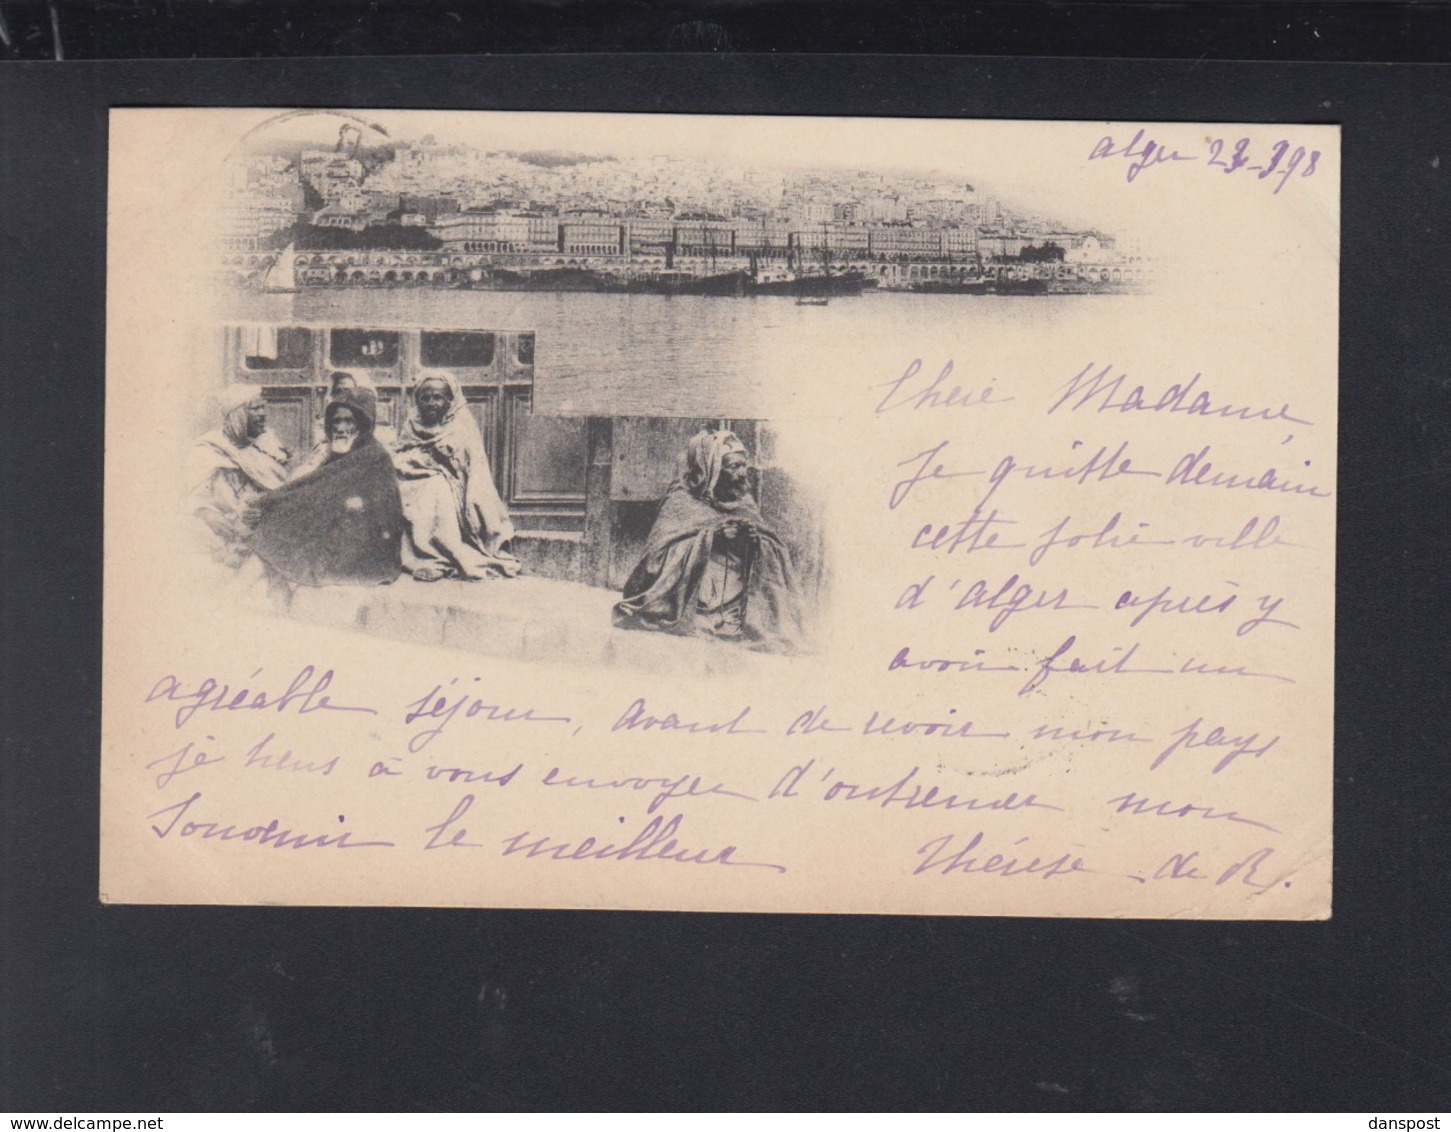 alger 23-3-98
Chère Madame,
Je quitte demain
cette jolie ville
d'alger après y
avoir fait un
agréable séjour, avant de revoir mon pays
je tiens à vous envoyer d'outremer mon
Souvenir le meilleur Thérèse de R.
www.delcampe.net
danspost